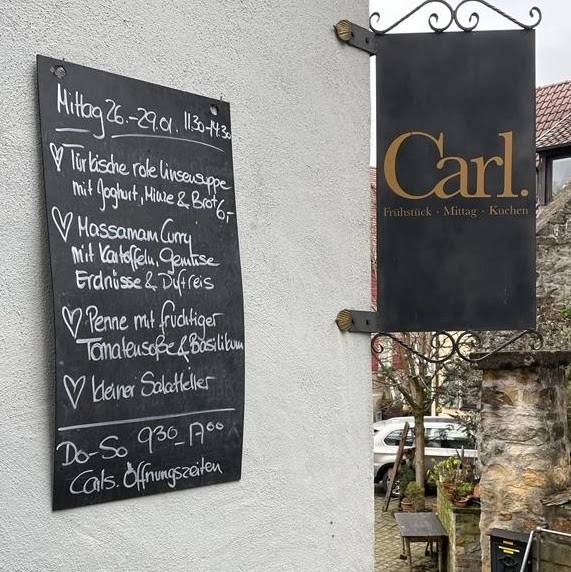 Mittag 26.-29.01. 11:30-14:30
Türkische rote Linsensuppe
mit Joghurt, Minze & Brot 6,-
Massamam Curry
mit Kartoffeln, Gemüse
Erdnüsse & Duftreis
Penne mit fruchtiger
Tomatensoße & Basilikum
kleiner Salatteller
Do-So 9³⁰-17⁰⁰
Carls. Öffnungszeiten
Carl.
Frühstück · Mittag · Kuchen